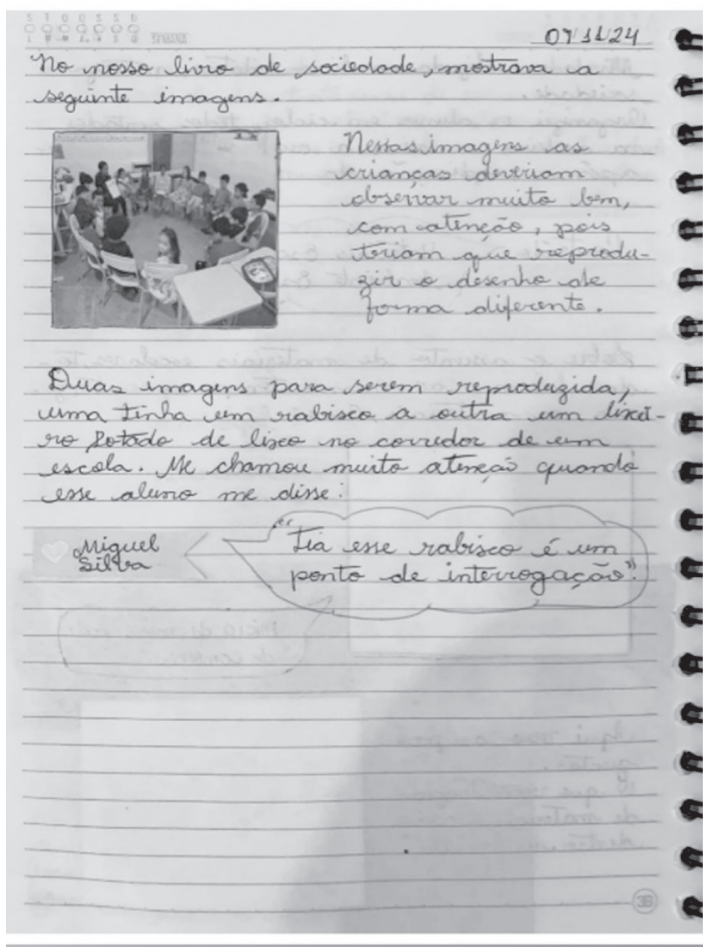 07/11/24
No nosso livro de sociedade, mostrava a
seguinte imagens.
Nessas imagens as
crianças deveriam
observar muito bem,
com atenção, pois
teriam que reprodu-
zir o desenho de
forma diferente.
Duas imagens para serem reproduzida,
uma tinha um rabisco a outra um lixei-
ro lotado de lixo no corredor de um
escola. Me chamou muito atenção quando
esse aluno me disse:
Miguel
Silva
"Tia esse rabisco é um
ponto de interrogação".
38